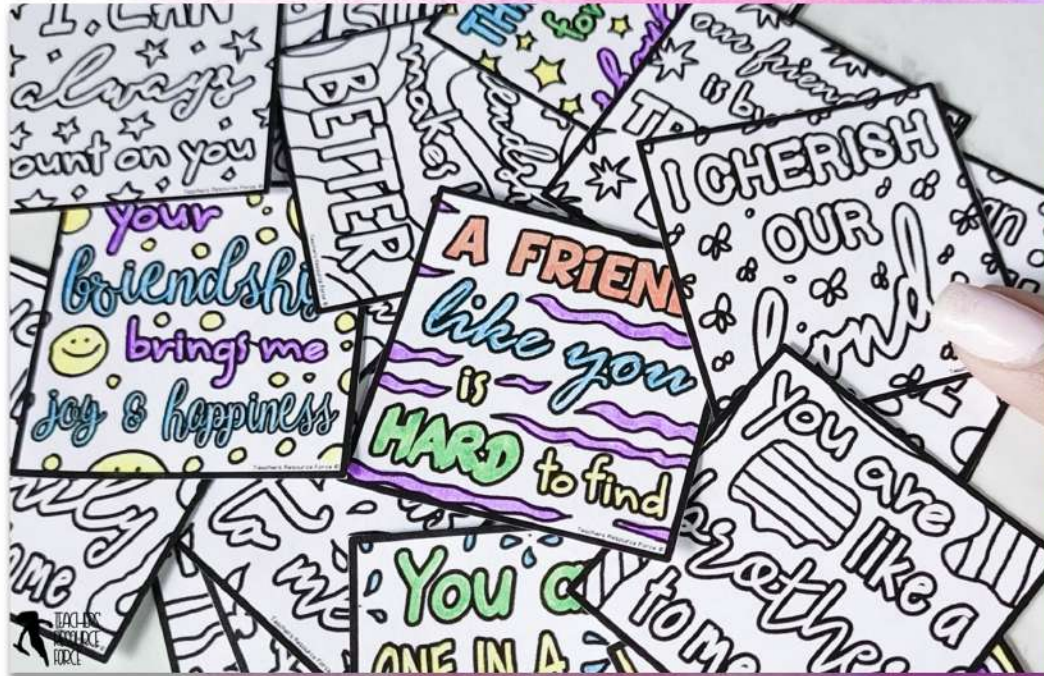 I CAN
always
ount on you
Teachers Resource Force ©
BETTER
makes
our frien
is by
I CHERISH
OUR
bond
your
friendshi
brings me
joy & happiness
Teachers Resource Force ©
A FRIEN
like you
is
HARD to find
Teachers Resource Force ©
You are
like a
brothe
to me
me
to
me
You a
ONE IN A
TEACHERS'
RESOURCE
FORCE